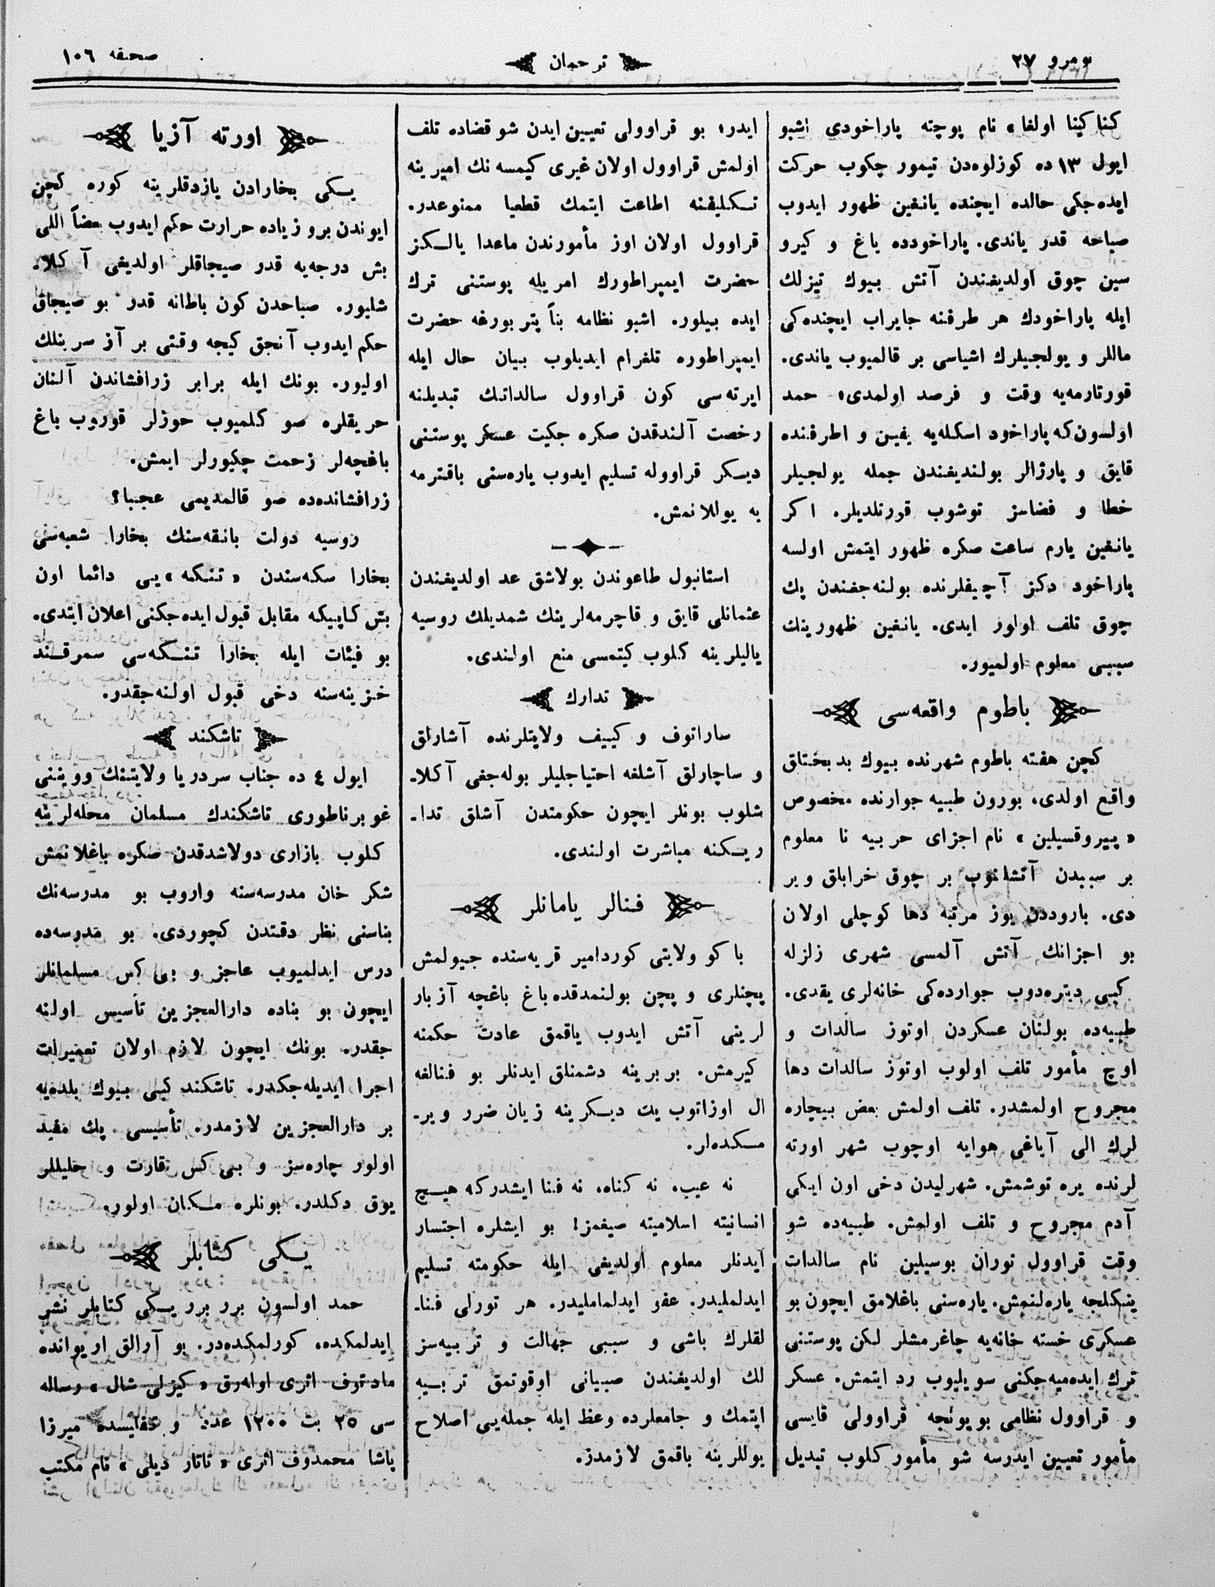 نومرو ٢٧
ترجمان
صحيفه ١٠٦
كناكينا اولغا» نام پوچته پاراخودى اشبو
ايول ١٣ ده كوزلوه‌دن تيمور چكوب حركت
ايده‌جكى حالده ايچنده يانغين ظهور ايدوب
صباحه قدر ياندى. پاراخودده ياغ و كيرو
سين چوق اولديغندن آتش بيوك تيزلك
ايله پاراخودك هر طرفنه جايراب ايچنده‌كى
ماللر و يولجيلرك اشياسى بر قالميوب ياندى.
قورتارمه‌يه وقت و فرصد اولمدى؛ حمد
اولسون‌كه پاراخود اسكله‌يه يقين و اطرفنده
قايق و پارژالر بولنديغندن جمله يولجيلر
خطا و قضاسز توشوب قورتلديلر. اكر
يانغين يارم ساعت صكره ظهور ايتمش اولسه
پاراخود دكز آچيقلرنده بولنه‌جغندن پك
چوق تلف اولور ايدى. يانغين ظهورينك
سببى معلوم اولميور.
باطوم واقعه‌سى
كچن هفته باطوم شهرنده بيوك بدبختلق
واقع اولدى. بورون طبيه جوارنده مخصوص
«پيروقسيلين» نام اجزاى حربيه نا معلوم
بر سببدن آتشلنوب بر چوق خرابلق وير
دى. باروددن يوز مرتبه دها كوچلى اولان
بو اجزانك آتش آلمسى شهرى زلزله
كبى ديتره‌دوب جوارده‌كى خانه‌لرى يقدى.
طبيه‌ده بولنان عسكردن اوتوز سالدات و
اوچ مأمور تلف اولوب اوتوز سالدات دها
مجروح اولمشدر. تلف اولمش بعض بيچاره
لرك الى آياغى هوايه اوچوب شهر اورته
لرنده يره توشمش. شهرليدن دخى اون ايكى
آدم مجروح و تلف اولمش. طبيه‌ده شو
وقت قراوول توران بوسيلين نام سالدات
ينيكلجه ياره‌لنمش. ياره‌سنى باغلامق ايچون بو
عسكرى خسته خانه‌يه چاغرمشلر لكن پوستنى
ترك ايده‌ميه‌جكنى سويليوب رد ايتمش. عسكر
و قراوول نظامى بويونجه قراوولى قايسى
مأمور تعيين ايدرسه شو مأمور كلوب تبديل
ايدر؛ بو قراوولى تعيين ايدن شو قضاده تلف
اولمش قراوول اولان غيرى كيمسه نك اميرينه
تكليفنه اطاعت ايتمك قطعيا ممنوعدر.
قراوول اولان اوز مأمورندن ماعدا يالكز
حضرت ايمپراطورك امريله پوستنى ترك
ايده بيلور. اشبو نظامه بناً پتربورغه حضرت
ايمپراطوره تلغرام ايديلوب بيان حال ايله
ايرته‌سى كون قراوول سالداتك تبديلنه
رخصت آلندقدن صكره جكيت عسكر پوستنى
ديكر قراووله تسليم ايدوب ياره‌سنى باقترمه
يه يوللانمش.
استانبول طاعوندن بولاشق عد اولديغندن
عثمانلى قايق و قاچرمه‌لرينك شمديلك روسيه
ياليلرينه كلوب كيتمسى منع اولندى.
تدارك
ساراتوف و كييف ولايتلرنده آشارلق
و ساچارلق آشلغه احتياجليلر بوله‌جغى آكلا-
شلوب بونلر ايچون حكومتدن آشلق تدا-
ريكنه مباشرت اولندى.
فنالر يامانلر
باكو ولايتى كوردامير قريه‌سنده جيولمش
پچنلرى و پچن بولنمدقده باغ باغچه آزبار
لرينى آتش ايدوب ياقمق عادت حكمنه
كيرمش. بربرينه دشمنلق ايدنلر بو فنالغه
ال اوزاتوب يك ديكرينه زيان ضرر وير-
مكده‌لر.
نه عيب، نه كناه، نه فنا ايشدركه هيچ
انسانيته اسلاميته صيغمز! بو ايشلره اجتسار
ايدنلر معلوم اولديغى ايله حكومته تسليم
ايدلمليدر. عفو ايدلمامليدر. هر تورلى فنا-
لقلرك باشى و سببى جهالت و تربيه‌سز
لك اولديغندن صبيانى اوقوتمق تربيه
ايتمك و جامعلرده وعظ ايله جمله‌يى اصلاح
يوللرينه باقمق لازمدر.
اورته آزيا
يكى بخارادن يازدقلرينه كوره كچن
ايوندن برو زياده حرارت حكم ايدوب بعضاً اللى
بش درجه‌يه قدر صيجاقلر اولديغى آكلا-
شليور. صباحدن كون باطانه قدر بو صيجاق
حكم ايدوب آنجق كيجه وقتى بر آز سرينلك
اوليور. بونك ايله برابر زرافشاندن آلنان
حريقلره صو كلميوب حوزلر قوروب باغ
باغچه‌لر زحمت چكيورلر ايمش.
زرافشانده‌ده صو قالمديمى عجبا؟
روسيه دولت بانقه‌سنك بخارا شعبه‌سى
بخارا سكه‌سندن «تنكه»يى دائما اون
بش كاپيكه مقابل قبول ايده‌جكنى اعلان ايتدى.
بو فيئات ايله بخارا تنكه‌سى سمرقند
خزينه‌سنه دخى قبول اولنه‌جقدر.
تاشكند
ايول ٤ ده جناب سردريا ولايتنك وويننى
غوبرناطورى تاشكندك مسلمان محله‌لرينه
كلوب بازارى دولاشدقدن صكره باغلانمش
شكر خان مدرسه‌سنه واروب بو مدرسه‌نك
بناسنى نظر دقتدن كچوردى. بو مدرسه‌ده
درس ايدلميوب عاجز و بى كس مسلمانلر
ايچون بو بناده دارالعجزين تأسيس اولنه
جقدر. بونك ايچون لازم اولان تعميرات
اجرا ايديله‌جكدر. تاشكند كبى بيوك بلده‌يه
بر دارالعجزين لازمدر. تأسيسى پك مفيد
اولور چاره‌سز و بى كس قارت و خليللر
يوق دكلدر. بونلره مكان اولور.
يكى كتابلر
حمد اولسون برر برر يكى كتابلر نشر
ايدلمكده، كورلمكده‌در. بو آرالق اريوانده
مادتوف اثرى اوله‌رق «كيزلى شال» رساله
سى ٢٥ بت ١٢٠٠ عدد و تفليسده ميرزا
پاشا محمدوف اثرى «تاتار ديلى» نام مكتب